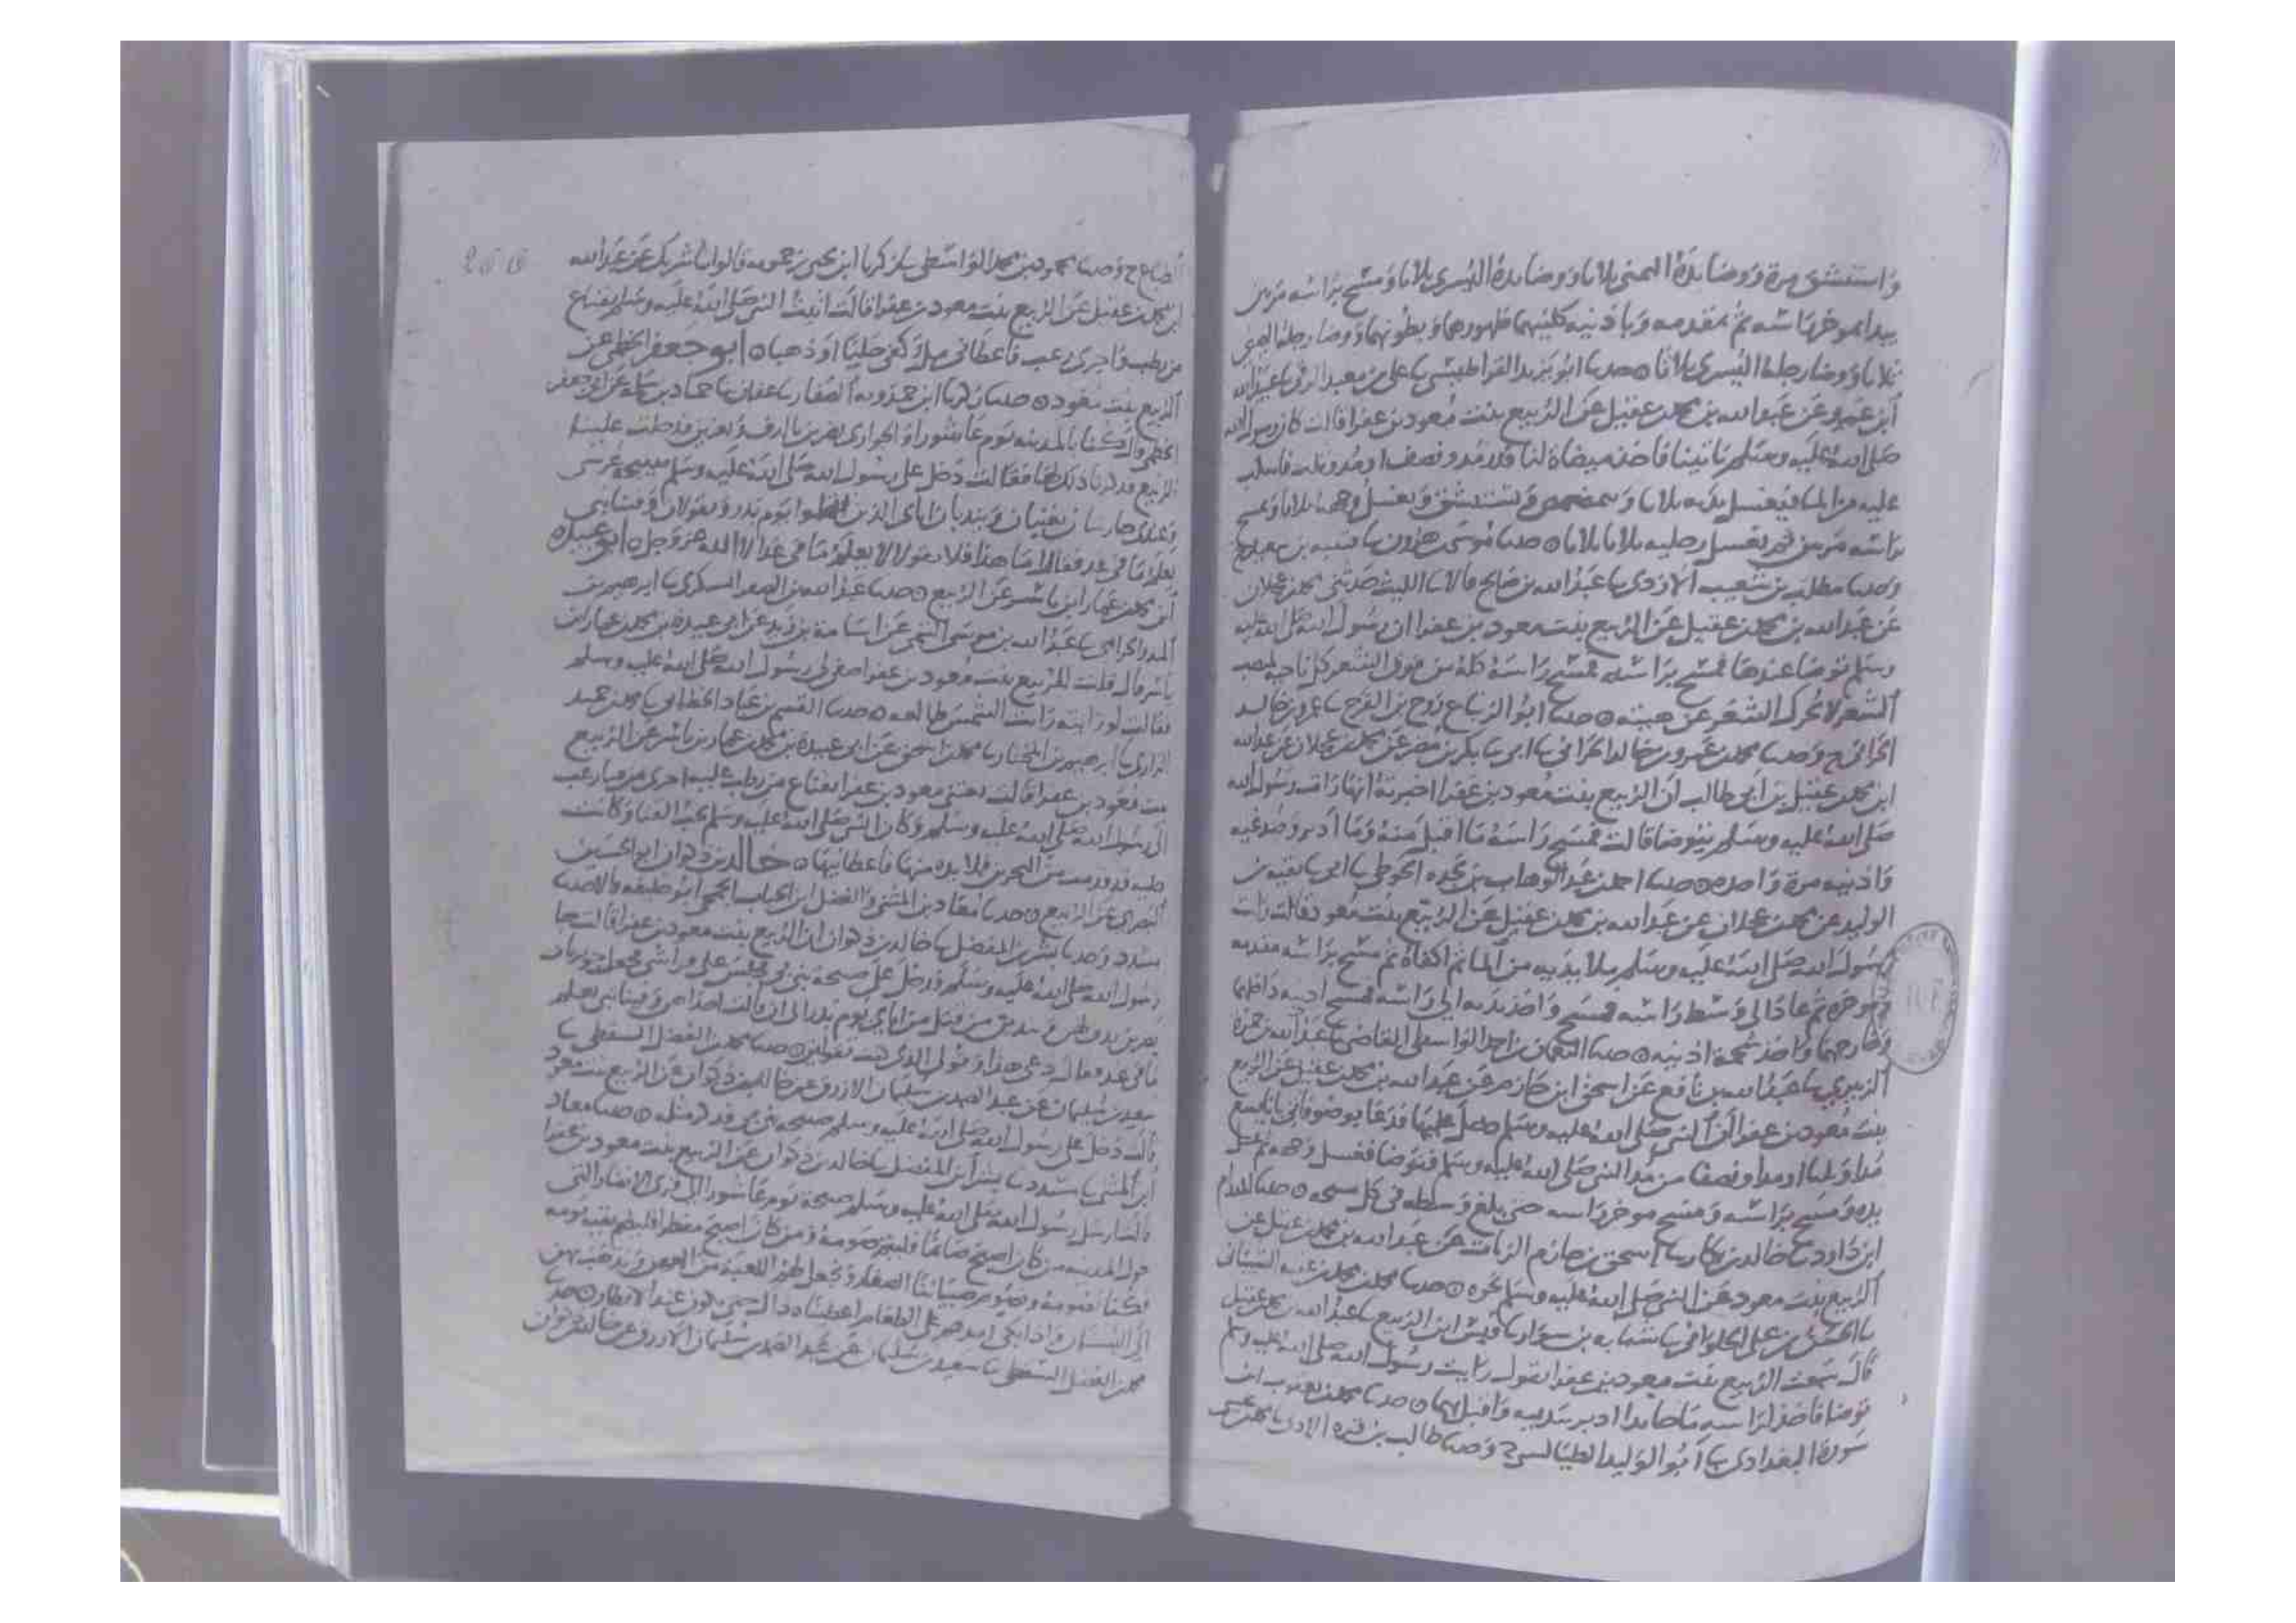 واستنشق مرة ووضا يده اليمنى ثلاثا ووضا يده اليسرى ثلاثا ومسح براسه مرتين
يبدا بموخر راسه ثم بمقدمه وباذنيه كليهما ظهورهما وبطونهما ووضا رجله اليمنى
ثلاثا ووضا رجله اليسرى ثلاثا ٥ حدثنا ابو يزيد القراطيسي ثنا علي بن معبد الرقي ثنا عبيد الله
ابن عمرو عن عبد الله بن محمد بن عقيل عن الربيع بنت معوذ بن عفرا قالت كان رسول الله
صلى الله عليه وسلم ياتينا فاخذ ميضاة لنا قدر مد ونصف او مد وثلث فاسكب
عليه من الما فيغسل يديه ثلاثا ويمضمض ويستنشق ويغسل وجهه ثلاثا ويمسح
براسه مرتين ثم يغسل رجليه ثلاثا ثلاثا ٥ حدثنا موسى بن هارون ثنا قتيبة بن سعيد ح
وحدثنا مطلب بن شعيب الازدي ثنا عبد الله بن صالح قالا ثنا الليث حدثني محمد بن عجلان
عن عبد الله بن محمد بن عقيل عن الربيع بنت معوذ بن عفرا ان رسول الله صلى الله عليه
وسلم توضا عندها فمسح براسه فمسح راسه كله من فوق الشعر كل ناحية لمنصب
الشعر لا يحرك الشعر عن هيئته ٥ حدثنا ابو الزنباع روح بن الفرج ثنا عمرو بن خالد
الحراني ح وحدثنا محمد بن عمرو بن خالد الحراني ثنا ابي ثنا بكر بن مضر عن محمد بن عجلان عن عبد الله
ابن محمد بن عقيل بن ابي طالب ان الربيع بنت معوذ بن عفرا اخبرته انها رات رسول الله
صلى الله عليه وسلم يتوضا قالت فمسح راسه ما اقبل منه وما ادبر وصدغيه
واذنيه مرة واحدة ٥ حدثنا احمد بن عبد الوهاب بن نجدة الحوطي ثنا ابي ثنا بقية بن
الوليد عن محمد بن عجلان عن عبد الله بن محمد بن عقيل عن الربيع بنت معوذ قالت رات
رسول الله صلى الله عليه وسلم ملا يديه من الما ثم اكفاه ثم مسح براسه مقدمه
وموخره ثم عاد الى وسط راسه فمسح واخذ بيديه الى راسه فمسح اذنيه داخلهما
وخارجهما واخذ شحمة اذنيه ٥ حدثنا النعمان بن احمد الواسطي القاضي ثنا عبد الله بن حمزة
الزبيري ثنا عبد الله بن نافع عن اسحق ابن حازم عن عبد الله بن محمد بن عقيل عن الربيع
بنت معوذ بن عفرا ان النبي صلى الله عليه وسلم دخل عليها فدعا بوضو فاتي بانا يسع
مدا وثلثا او مدا ونصفا من مد النبي صلى الله عليه وسلم فتوضا فغسل وجهه ثم غسل
يده ومسح براسه ومسح موخر راسه حتى بلغ وسطه في كل مسحة ٥ حدثنا المقدام
ابن داود ثنا خالد بن نزار ثنا اسحق بن حازم الزيات عن عبد الله بن محمد بن عقيل عن
الربيع بنت معوذ عن النبي صلى الله عليه وسلم نحوه ٥ حدثنا محمد بن محمد بن عقبة الشيباني
ثنا الحسن بن علي الحلواني ثنا شبابة بن سوار ثنا قيس ابن الربيع ثنا عبد الله بن محمد بن عقيل
قال سمعت الربيع بنت معوذ بن عفرا تقول رايت رسول الله صلى الله عليه وسلم
توضا فاخذ لراسه ما جديدا ادبر بيديه واقبل بهما ٥ حدثنا محمد بن يعقوب ابن
سورة البغدادي ثنا ابو الوليد الطيالسي ح وحدثنا طالب بن قرة الادني ثنا محمد بن عيسى
الطباع ح وحدثنا محمود بن محمد الواسطي ثنا زكريا ابن يحيى زحمويه قالوا ثنا شريك عن عبد الله
ابن محمد بن عقيل عن الربيع بنت معوذ بن عفرا قالت اتيت النبي صلى الله عليه وسلم بقناع
من رطب واجري زغب فاعطاني ملو كفي حليا او ذهبا ٥ ابو جعفر الخطمي عن
الربيع بنت معوذ ٥ حدثنا زكريا ابن حمدويه الصفار ثنا عفان ثنا حماد بن سلمة عن ابي جعفر
الخطمي قال كنا بالمدينة يوم عاشورا والجواري يضربن بالدف ويغنين فدخلت على
الربيع فذكرنا ذلك لها فقالت دخل علي رسول الله صلى الله عليه وسلم صبيحة عرسي
وعندي جاريتان يغنيان ويندبان اباي الذين قتلوا يوم بدر ويقولان وفينا نبي
يعلم ما في غد فقال اما هذا فلا تقولا لا يعلم ما في غد الا الله عز وجل ٥ ابو عبيدة
ابن محمد بن عمار ابن ياسر عن الربيع ٥ حدثنا عبد الله بن الصقر السكري ثنا ابرهيم بن
المنذر الحزامي ثنا عبد الله بن موسى التيمي عن اسامة بن زيد عن ابي عبيدة بن محمد بن عمار ابن
ياسر قال قلت للربيع بنت معوذ بن عفرا صفي لي رسول الله صلى الله عليه وسلم
فقالت لو رايته رايت الشمس طالعة ٥ حدثنا القسم بن عباد الخطابي ثنا محمد بن حميد
الرازي ثنا ابرهيم بن المختار ثنا محمد بن اسحق عن ابي عبيدة بن محمد بن عمار بن ياسر عن الربيع
بنت معوذ بن عفرا قالت بعثني معوذ بن عفرا بقناع من رطب عليه اجري من قثا زغب
الى رسول الله صلى الله عليه وسلم وكان النبي صلى الله عليه وسلم يحب القثا وكانت
حلية قد قدمت من البحرين فملا يده منها فاعطانيها ٥ خالد بن ذكوان ابو الحسين
البصري عن الربيع ٥ حدثنا معاذ بن المثنى والفضل ابن الحباب الجمحي ابو خليفة قالا ثنا
مسدد وحدثنا بشر بن المفضل ثنا خالد بن ذكوان ان الربيع بنت معوذ بن عفرا قالت جا
رسول الله صلى الله عليه وسلم فدخل علي صبيحة بني بي فجلس على فراشي فجعل جويريات
يضربن بدف لهن ويندبن من قتل من اباي يوم بدر الى ان قالت احداهن وفينا نبي يعلم
ما في غد فقال دعي هذا وقولي الذي كنت تقولين ٥ حدثنا محمد بن الفضل السقطي ثنا
سعيد بن سليمان عن عبد الصمد بن سليمان الازرق عن خالد بن ذكوان عن الربيع بنت معوذ
قالت دخل علي رسول الله صلى الله عليه وسلم صبيحة بني بي فذكر مثله ٥ حدثنا معاذ
ابن المثنى ثنا مسدد ثنا بشر ابن المفضل ثنا خالد بن ذكوان عن الربيع بنت معوذ بن عفرا
قالت ارسل رسول الله صلى الله عليه وسلم صبيحة يوم عاشورا الى قرى الانصار التي
حول المدينة من كان اصبح صائما فليتم صومه ومن كان اصبح مفطرا فليتم بقية يومه
فكنا نصومه ونصوم صبياننا الصغار ونجعل لهم اللعبة من العهن ونذهب بهن
الى المسجد فاذا بكى احدهم على الطعام اعطيناه ذاك حتى يكون عند الافطار ٥ حدثنا
محمد بن الفضل السقطي ثنا سعيد بن سليمان عن عبد الصمد بن سليمان الازرق عن خالد بن ذكوان